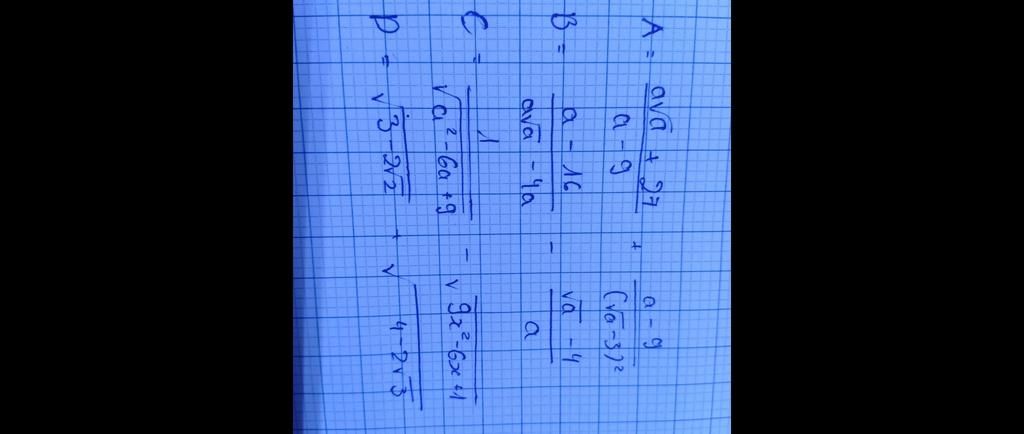 A = (a√a + 27)/(a - 9) + (a - 9)/(√a - 3)²
B = (a - 16)/(a√a - 4a) - (√a - 4)/a
C = 1/√(a² - 6a + 9) - √(9x² - 6x + 1)
D = √(3 - 2√2) + √(4 - 2√3)